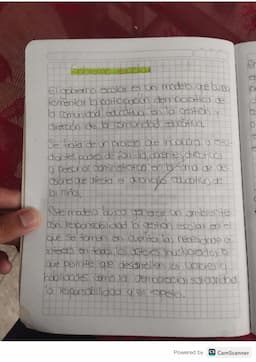 El gobierno escolar es un modelo que busca
fomentar la participación democrática de
la comunidad educativa en la gestión y
dirección de la comunidad educativa.
Se trata de un proceso que involucra a estu
diantes, padres de familia, docentes, directivos
y personal administrativo en la toma de de
que afecta el educativo de
la
Este modelo busca
con responsabilidad la gestión escolar en el
que se tomen en cuenta las necesidades e
intereses en todos los actores involucrados, lo
que permite que desarrollen los valores y
habilidades como la democracia, solidaridad
la responsabilidad y el respeto.
Powered by CamScanner